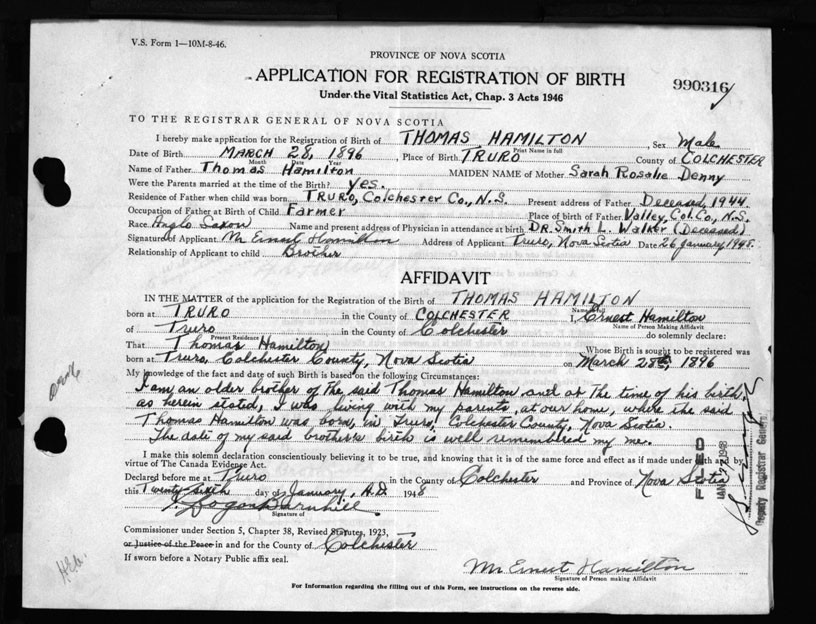 V.S. Form 1—10M-8-46.
PROVINCE OF NOVA SCOTIA
APPLICATION FOR REGISTRATION OF BIRTH
Under the Vital Statistics Act, Chap. 3 Acts 1946
990316
TO THE REGISTRAR GENERAL OF NOVA SCOTIA
I hereby make application for the Registration of Birth of THOMAS HAMILTON, Sex Male
Print Name in full
Date of Birth MARCH 28, 1896, Place of Birth TRURO County of COLCHESTER
Month Date Year
Name of Father Thomas Hamilton MAIDEN NAME of Mother Sarah Rosalie Denny
Were the Parents married at the time of the Birth? Yes.
Residence of Father when child was born TRURO, Colchester Co., N.S. Present address of Father Deceased, 1944.
Occupation of Father at Birth of Child Farmer Place of birth of Father Valley, Col. Co., N.S.
Race Anglo Saxon Name and present address of Physician in attendance at birth DR. Smith L. Walker (Deceased)
Signature of Applicant Mr Ernest Hamilton Address of Applicant Truro, Nova Scotia Date 26 January, 1948.
Relationship of Applicant to child Brother
AFFIDAVIT
IN THE MATTER of the application for the Registration of the Birth of THOMAS HAMILTON
Name in full
born at TRURO in the County of COLCHESTER I, Ernest Hamilton
Name of Person Making Affidavit
of Truro in the County of Colchester do solemnly declare:
Present Residence
That Thomas Hamilton Whose Birth is sought to be registered was
born at Truro, Colchester County, Nova Scotia on March 28th, 1896
My knowledge of the fact and date of such Birth is based on the following Circumstances:
I am an older brother of the said Thomas Hamilton and at the time of his birth
as herein stated, I was living with my parents, at our home, where the said
Thomas Hamilton was born, in Truro, Colchester County, Nova Scotia.
The date of my said brother's birth is well remembered my me.
I make this solemn declaration conscientiously believing it to be true, and knowing that it is of the same force and effect as if made under oath and by
virtue of The Canada Evidence Act.
Declared before me at Truro in the County of Colchester and Province of Nova Scotia
this Twenty-sixth day of January, A.D. 1948
Signature of
Commissioner under Section 5, Chapter 38, Revised Statutes, 1923,
or Justice of the Peace in and for the County of Colchester
If sworn before a Notary Public affix seal.
Mr Ernest Hamilton
Signature of Person making Affidavit
For Information regarding the filling out of this Form, see instructions on the reverse side.
FILED
JAN 27 1948
Deputy Registrar General